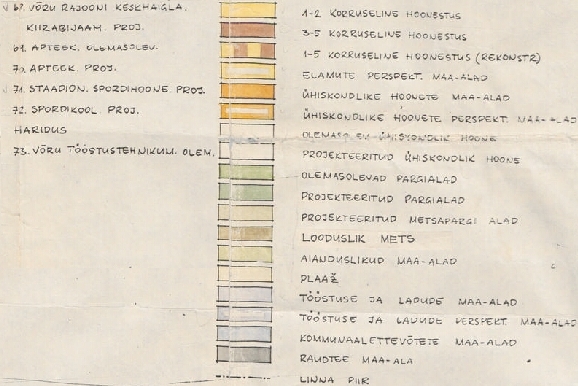 67. VÕRU RAJOONI KESKHAIGLA.
KIIRABIJAAM. PROJ.
69. APTEEK. OLEMASOLEV.
70. APTEEK. PROJ.
71. STAADION. SPORDIHOONE. PROJ.
72. SPORDIKOOL. PROJ.
HARIDUS
73. VÕRU TÖÖSTUSTEHNIKUM. OLEM.
1-2 KORRUSELINE HOONESTUS
3-5 KORRUSELINE HOONESTUS
1-5 KORRUSELINE HOONESTUS (REKONSTR)
ELAMUTE PERSPEKT. MAA-ALAD
ÜHISKONDLIKE HOONETE MAA-ALAD
ÜHISKONDLIKE HOONETE PERSPEKT. MAA-ALAD
OLEMASOLEV ÜHISKONDLIK HOONE
PROJEKTEERITUD ÜHISKONDLIK HOONE
OLEMASOLEVAD PARGIALAD
PROJEKTEERITUD PARGIALAD
PROJEKTEERITUD METSAPARGI ALAD
LOODUSLIK METS
AIANDUSLIKUD MAA-ALAD
PLAAŽ
TÖÖSTUSE JA LADUDE MAA-ALAD
TÖÖSTUSE JA LADUDE PERSPEKT MAA-ALAD
KOMMUNAALETTEVÕTETE MAA-ALAD
RAUDTEE MAA-ALA
LINNA PIIR